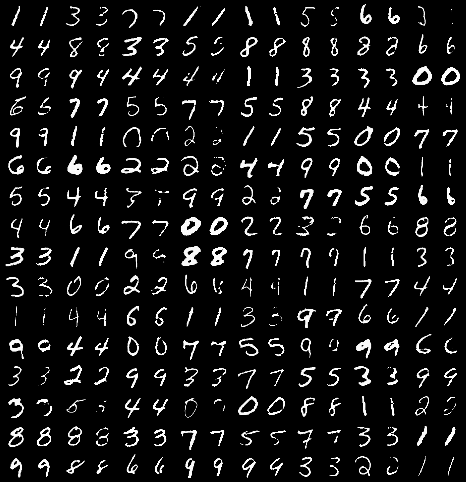 1 1 3 3 7 7 1 1 1 1 5 5 6 6 3
4 4 8 8 3 3 5 5 8 8 8 8 8 2 6 6
9 9 9 4 4 4 4 4 1 1 3 3 3 3 0 0
6 6 7 7 5 5 7 7 5 5 8 8 4 4 4 4
9 9 1 1 0 0 2 2 1 1 5 5 0 0 7 7
6 6 6 6 2 2 2 2 4 4 9 9 0 0 1 1
5 5 4 4 3 9 9 2 2 7 7 5 5 6 6
4 4 6 6 7 7 0 0 2 2 3 6 6 8 8
3 3 1 1 9 9 8 8 7 7 7 7 1 1 3 3
3 3 0 0 2 2 6 6 4 4 1 1 7 7 4 4
1 1 4 4 6 6 1 1 3 3 9 9 6 6 1 1
9 9 4 4 0 0 7 7 5 5 9 9 9 6
3 3 2 2 9 9 3 3 7 7 5 5 3 3 9 9
3 3 6 4 4 0 0 0 8 8 1 1 2
8 8 8 8 3 3 7 7 5 5 7 7 3 3 1 1
9 9 8 8 6 6 9 9 9 9 3 3 2 0 1 1